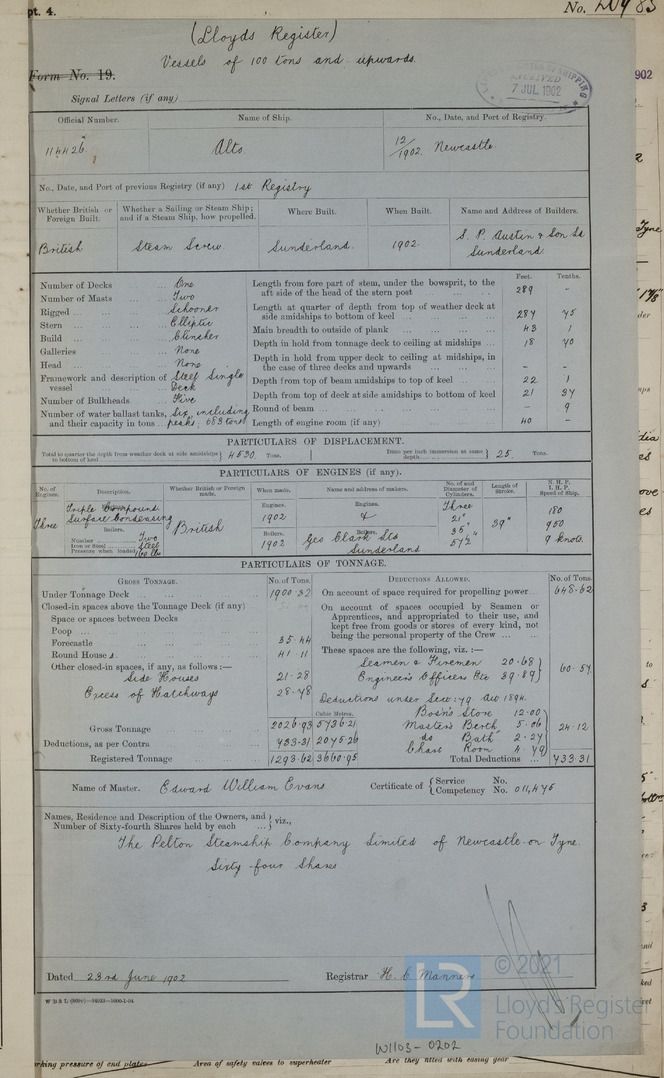 pt. 4.
No.
(Lloyds Register)
Vessels of 100 tons and upwards.
Form No. 19.
RECEIVED
7 JUL 1902
902
Signal Letters (if any)
Official Number.
Name of Ship.
No., Date, and Port of Registry.
114426
Alto.
12/1902. Newcastle
No., Date, and Port of previous Registry (if any) 1st Registry
Whether British or Foreign Built.
Whether a Sailing or Steam Ship; and if a Steam Ship, how propelled.
Where Built.
When Built.
Name and Address of Builders.
British
Steam Screw
Sunderland.
1902
S. P. Austin & Son Ld
Sunderland.
Feet. Tenths.
Number of Decks ... One
Number of Masts ... Two
Rigged ... Schooner
Stern ... Elliptic
Build ... Clincher
Galleries ... None
Head ... None
Framework and description of vessel ... Steel Single Deck
Number of Bulkheads ... Five
Number of water ballast tanks, and their capacity in tons ... Six, including peaks, 683 tons
Length from fore part of stem, under the bowsprit, to the aft side of the head of the stern post 289 -
Length at quarter of depth from top of weather deck at side amidships to bottom of keel 287 75
Main breadth to outside of plank 43 1
Depth in hold from tonnage deck to ceiling at midships 18 70
Depth in hold from upper deck to ceiling at midships, in the case of three decks and upwards - -
Depth from top of beam amidships to top of keel 22 1
Depth from top of deck at side amidships to bottom of keel 21 37
Round of beam - 9
Length of engine room (if any) 40 -
PARTICULARS OF DISPLACEMENT.
Total to quarter the depth from weather deck at side amidships to bottom of keel } 4530. Tons.
Ditto per inch immersion at same depth } 25. Tons.
PARTICULARS OF ENGINES (if any).
No. of Engines.
Description.
Whether British or Foreign made.
When made.
Name and address of makers.
No. of and Diameter of Cylinders.
Length of Stroke.
N. H. P.
I. H. P.
Speed of Ship.
Three
Triple Compound
Surface Condensing
Boilers.
Number Two
Iron or Steel Steel
Pressure when loaded 160 lbs
British
Engines.
1902
Boilers.
1902
Engines.
&
Boilers.
Geo Clark Ltd
Sunderland
Three
21"
35"
57½
39"
180
950
9 knots.
PARTICULARS OF TONNAGE.
GROSS TONNAGE. No. of Tons.
Under Tonnage Deck 1900.32
Closed-in spaces above the Tonnage Deck (if any)
Space or spaces between Decks
Poop ...
Forecastle 35.44
Round House s 41.11
Other closed-in spaces, if any, as follows :—
Side Houses 21.28
Excess of Hatchways 28.78
Cubic Metres.
Gross Tonnage 2026.93 5736.21
Deductions, as per Contra 733.31 2075.26
Registered Tonnage 1293.62 3660.95
DEDUCTIONS ALLOWED. No. of Tons.
On account of space required for propelling power 648.62
On account of spaces occupied by Seamen or Apprentices, and appropriated to their use, and kept free from goods or stores of every kind, not being the personal property of the Crew ...
These spaces are the following, viz. :—
Seamen & Firemen 20.68
Engineers Officers Etc 39.89 } 60.57
Deductions under Sec: 79 Act 1894.
Bosn's Store 12.00
Master's Berth 5.06
do Bath 2.27
Chart Room 4.79 } 24.12
Total Deductions ... 733.31
Name of Master. Edward William Evans
Certificate of { Service No.
Competency No. 011,475
Names, Residence and Description of the Owners, and Number of Sixty-fourth Shares held by each ... } viz.,
The Pelton Steamship Company Limited of Newcastle on Tyne.
Sixty four Shares
Dated 23rd June 1902
Registrar H. C. Manners
LR
© 2021
Lloyd's Register
Foundation
W1103-0202
rking pressure of end plates
Area of safety valves to superheater
Are they fitted with easing gear